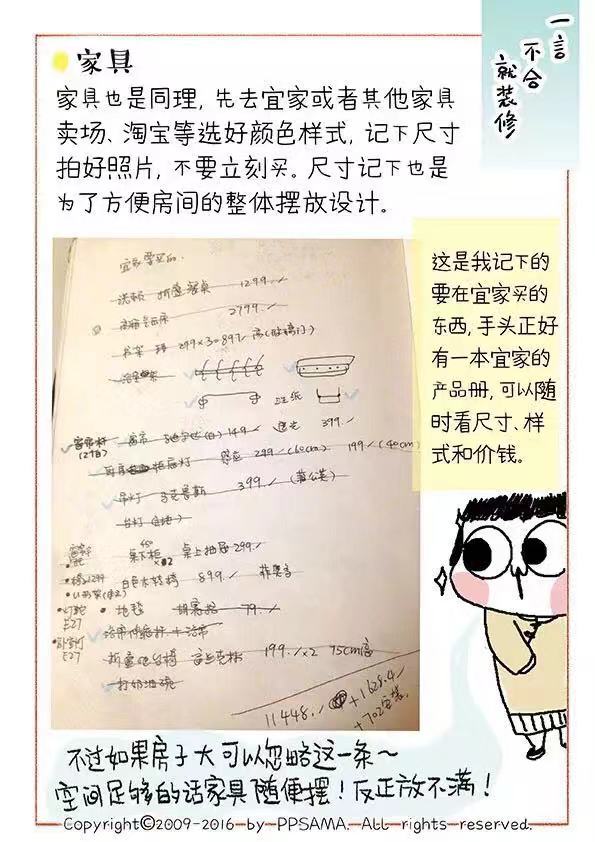 一言
不合
就装修
家具
家具也是同理, 先去宜家或者其他家具
卖场、淘宝等选好颜色样式, 记下尺寸
拍好照片, 不要立刻买。尺寸记下也是
为了方便房间的整体摆放设计。
这是我记下的
要在宜家买的
东西, 手头正好
有一本宜家的
产品册, 可以随
时看尺寸、样
式和价钱。
宜家要买的
折叠餐桌 1299./
2799./
书架 299×3=897/
149./ 遮光 399./
感应 299/(60cm) 199/(40cm)
吊灯 马克鲁斯 399./ (蒲公英)
桌下柜 桌上抽屉 299./
白色木转椅 899./
地毯 79./
E27
浴帘伸缩杆+浴帘
E27
199./×2 75cm高
打奶油碗
11448./ +1628.4/
不过如果房子大可以忽略这一条～
空间足够的话家具随便摆！反正放不满！
Copyright©2009-2016 by PPSAMA. All rights reserved.